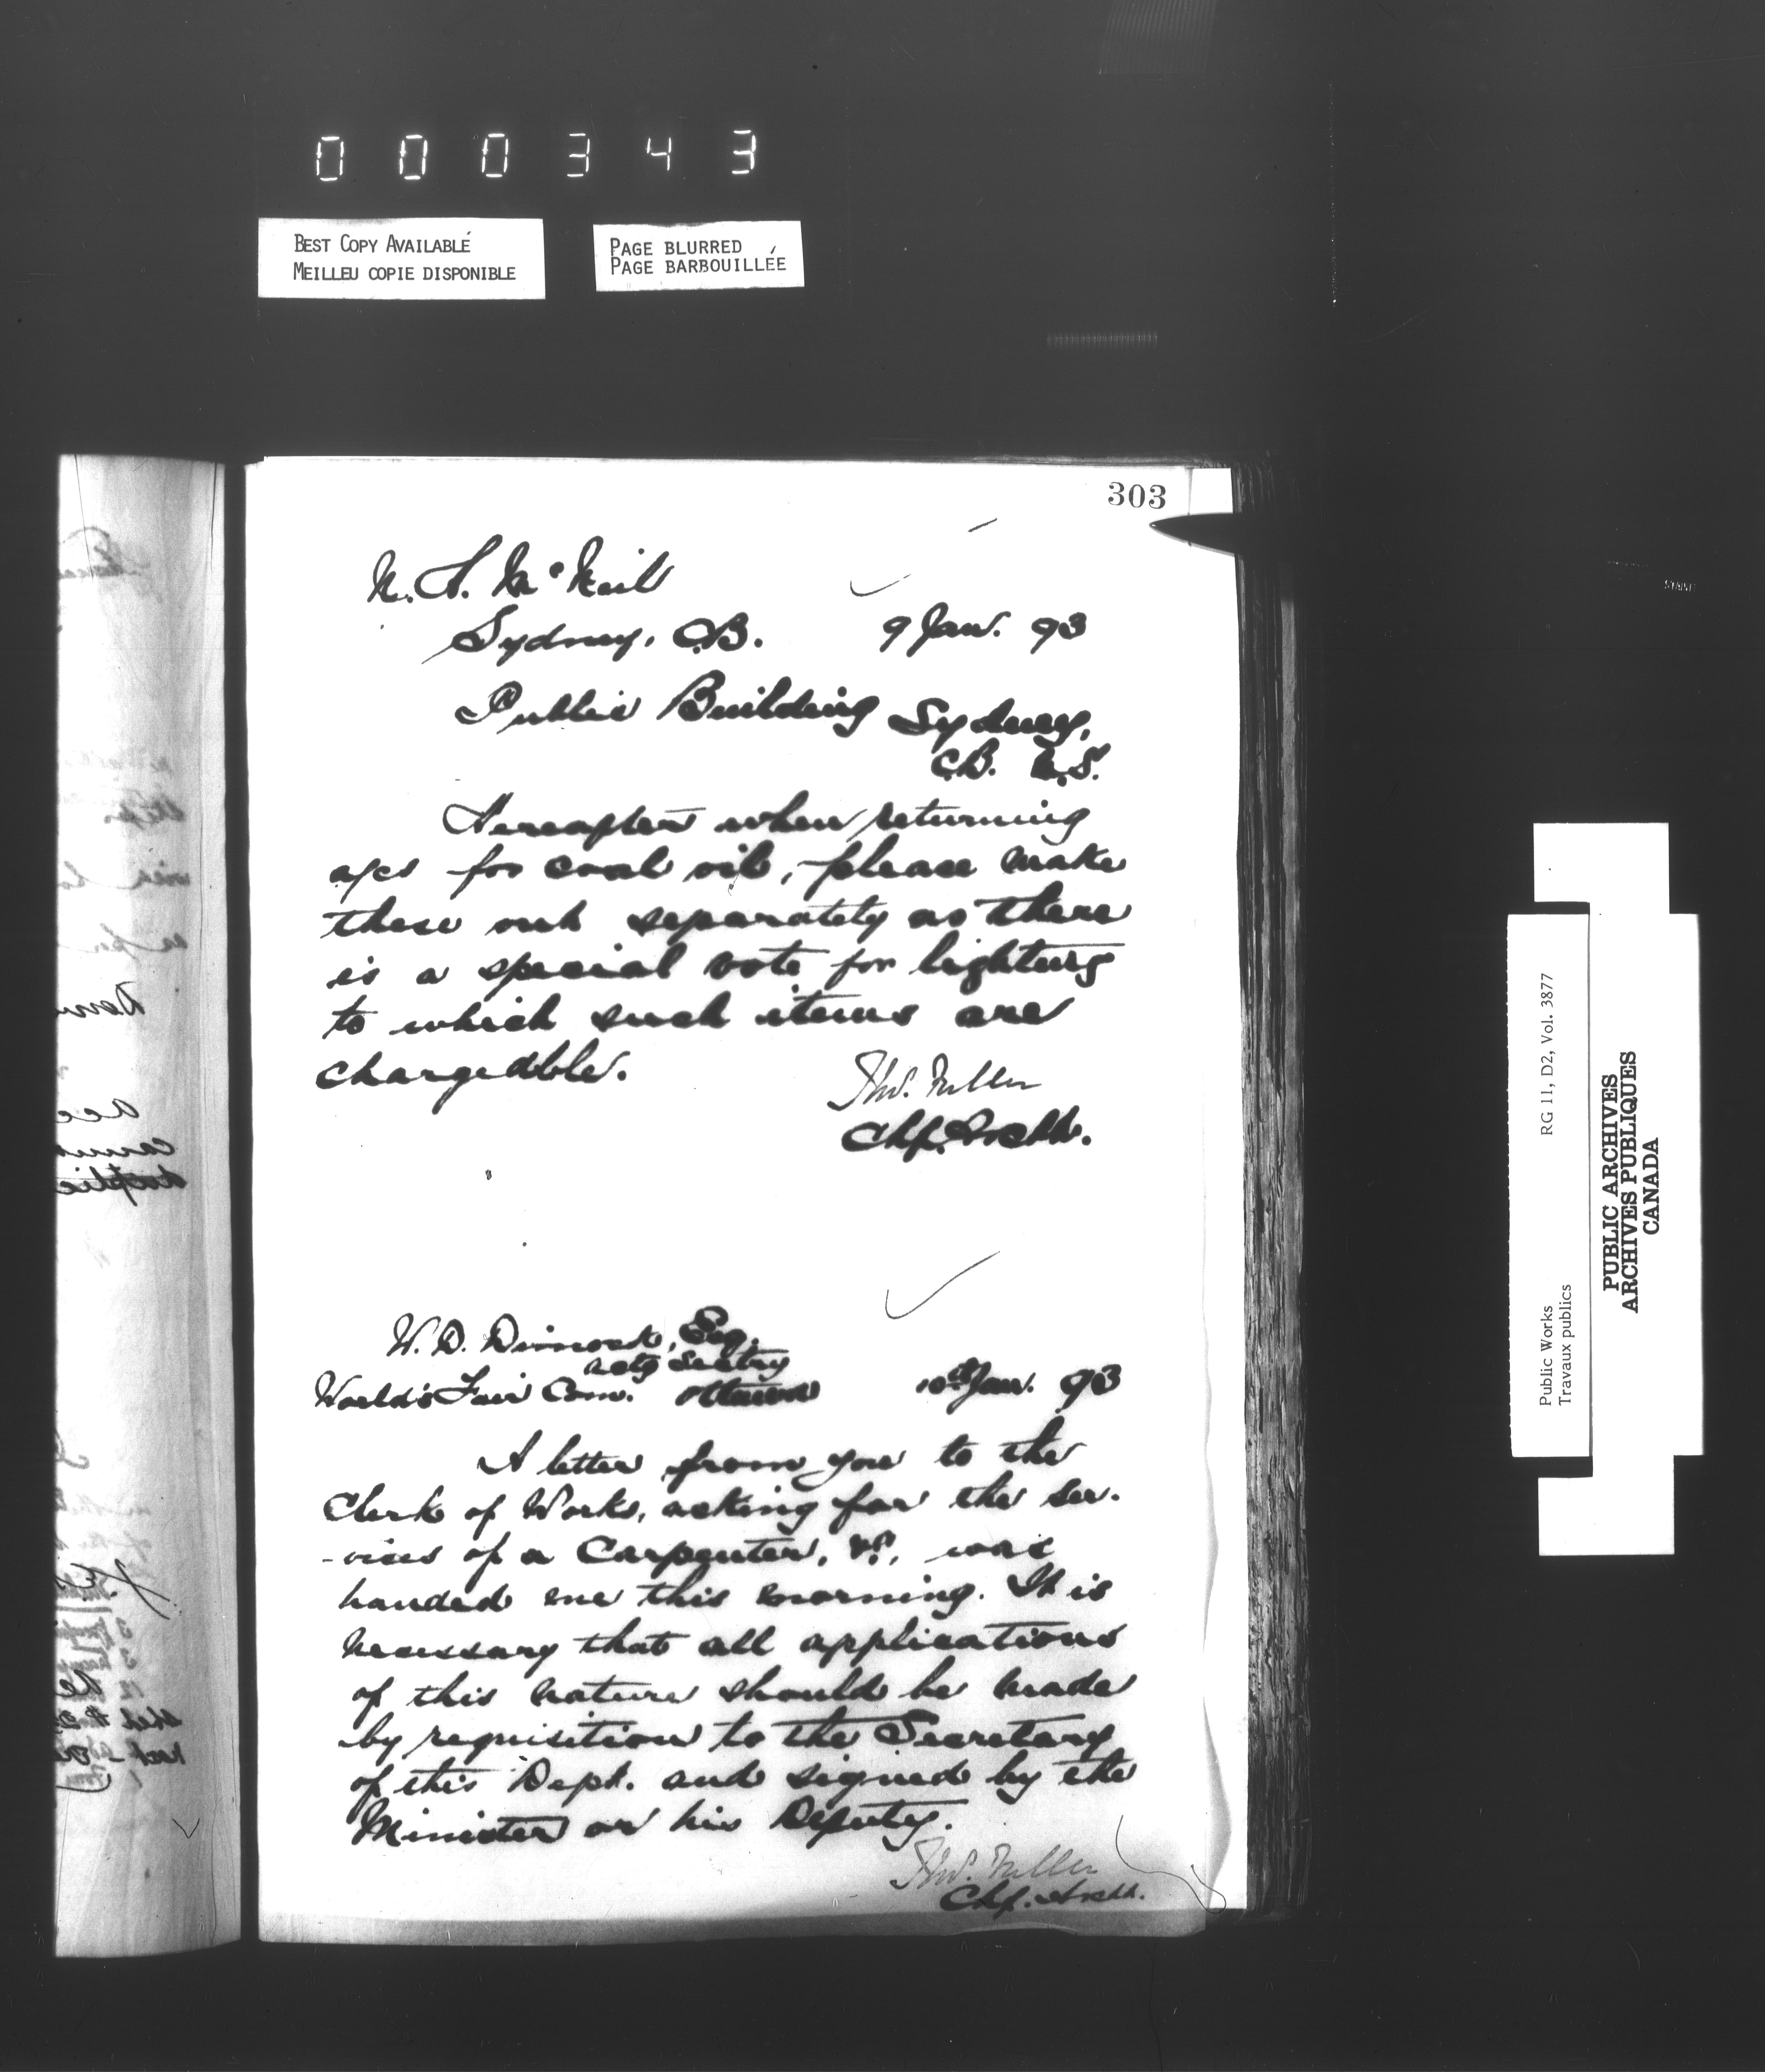 000343
BEST COPY AVAILABLE
MEILLEU COPIE DISPONIBLE
PAGE BLURRED
PAGE BARBOUILLÉE
303
N. S. McNeil
Sydney, C.B. 9 Jan. 93
Public Building Sydney,
C.B. N.S.
Hereafter when returning
a/cs for coal oil, please make
these out separately as there
is a special vote for lighting
to which such items are
chargeable.
Thos. Fuller
Chf. Archt.
W. D. Dimock, Esq.
actg Sectry
World's Fair Com. Ottawa 10th Jan. 93
A letter from you to the
Clerk of Works, asking for the ser-
-vices of a Carpenter, &c, was
handed me this morning. It is
necessary that all applications
of this nature should be made
by requisition to the Secretary
of this Dept. and signed by the
Minister or his Deputy.
Thos. Fuller
Chf. Archt.
RG 11, D2, Vol. 3877
Public Works
Travaux publics
PUBLIC ARCHIVES
ARCHIVES PUBLIQUES
CANADA